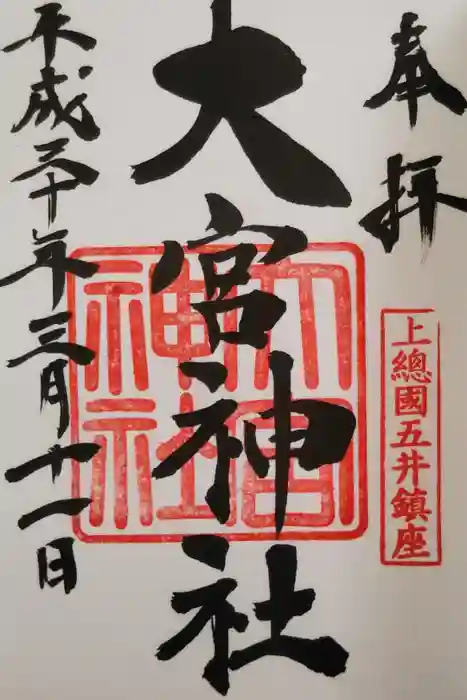 奉拝
上總國五井鎮座
大宮神社
大宮神社
平成三十年三月十一日